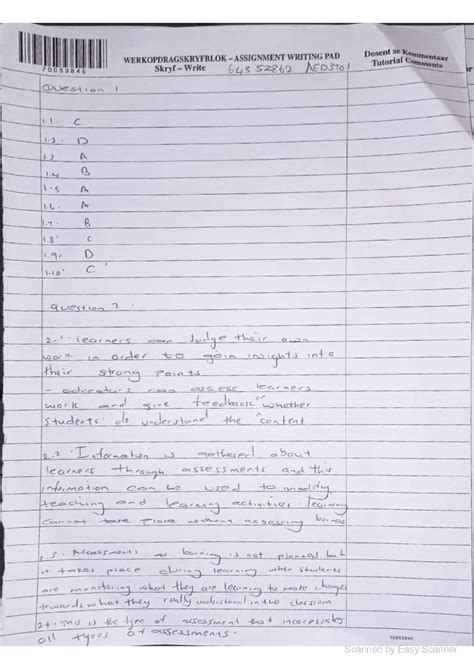 WERKOPDRAGSKRYFBLOK – ASSIGNMENT WRITING PAD
Skryf – Write 64352862 AED3701
Dosent se Kommentaar
Tutorial Comments
70059845
Question 1
1.1. C
1.2. D
1.3 A
1.4 B
1.5 A
1.6. A
1.7. B
1.8. C
1.9. D
1.10. C
Question 2.
2.1. learners can Judge their own
work in order to gain insights into
their strong points
- educators can assess learners
work and give feedback whether
students do understand the content
2.2. Information is gathered about
learners through assessments and this
information can be used to modify
teaching and learning activities learning
cannot take place without assessing
2.3. Assessments as learning is not planned but
it takes place during learning when students
are monitoring what they are learning to make changes
towards what they really understand in the classroom
2.4. This is the type of assessment that incorporates
all types of assessments.
70059845
Scanned by Easy Scanner